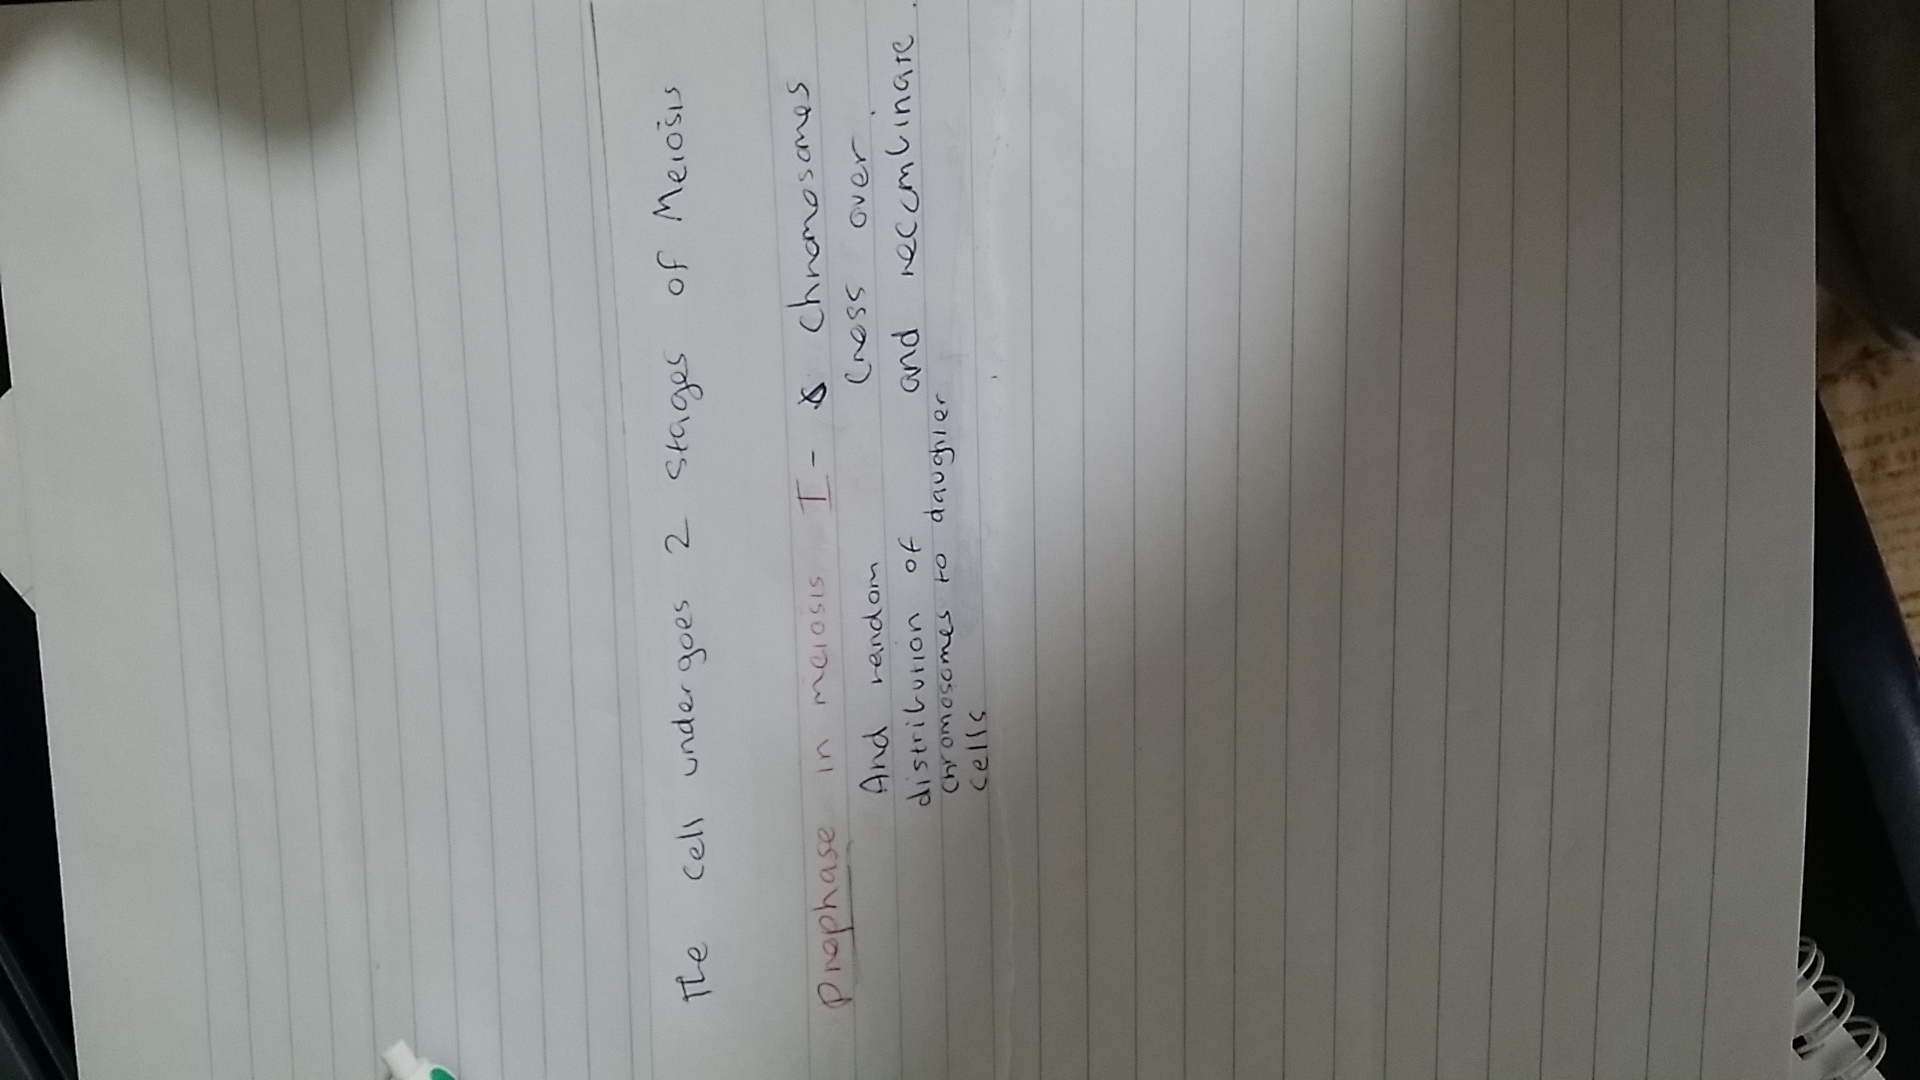 The cell undergoes 2 stages of Meiosis
Prophase in meiosis I - Chromosomes
cross over
and reccmbinate.
And random
distribution of
chromosomes to daughter
cells